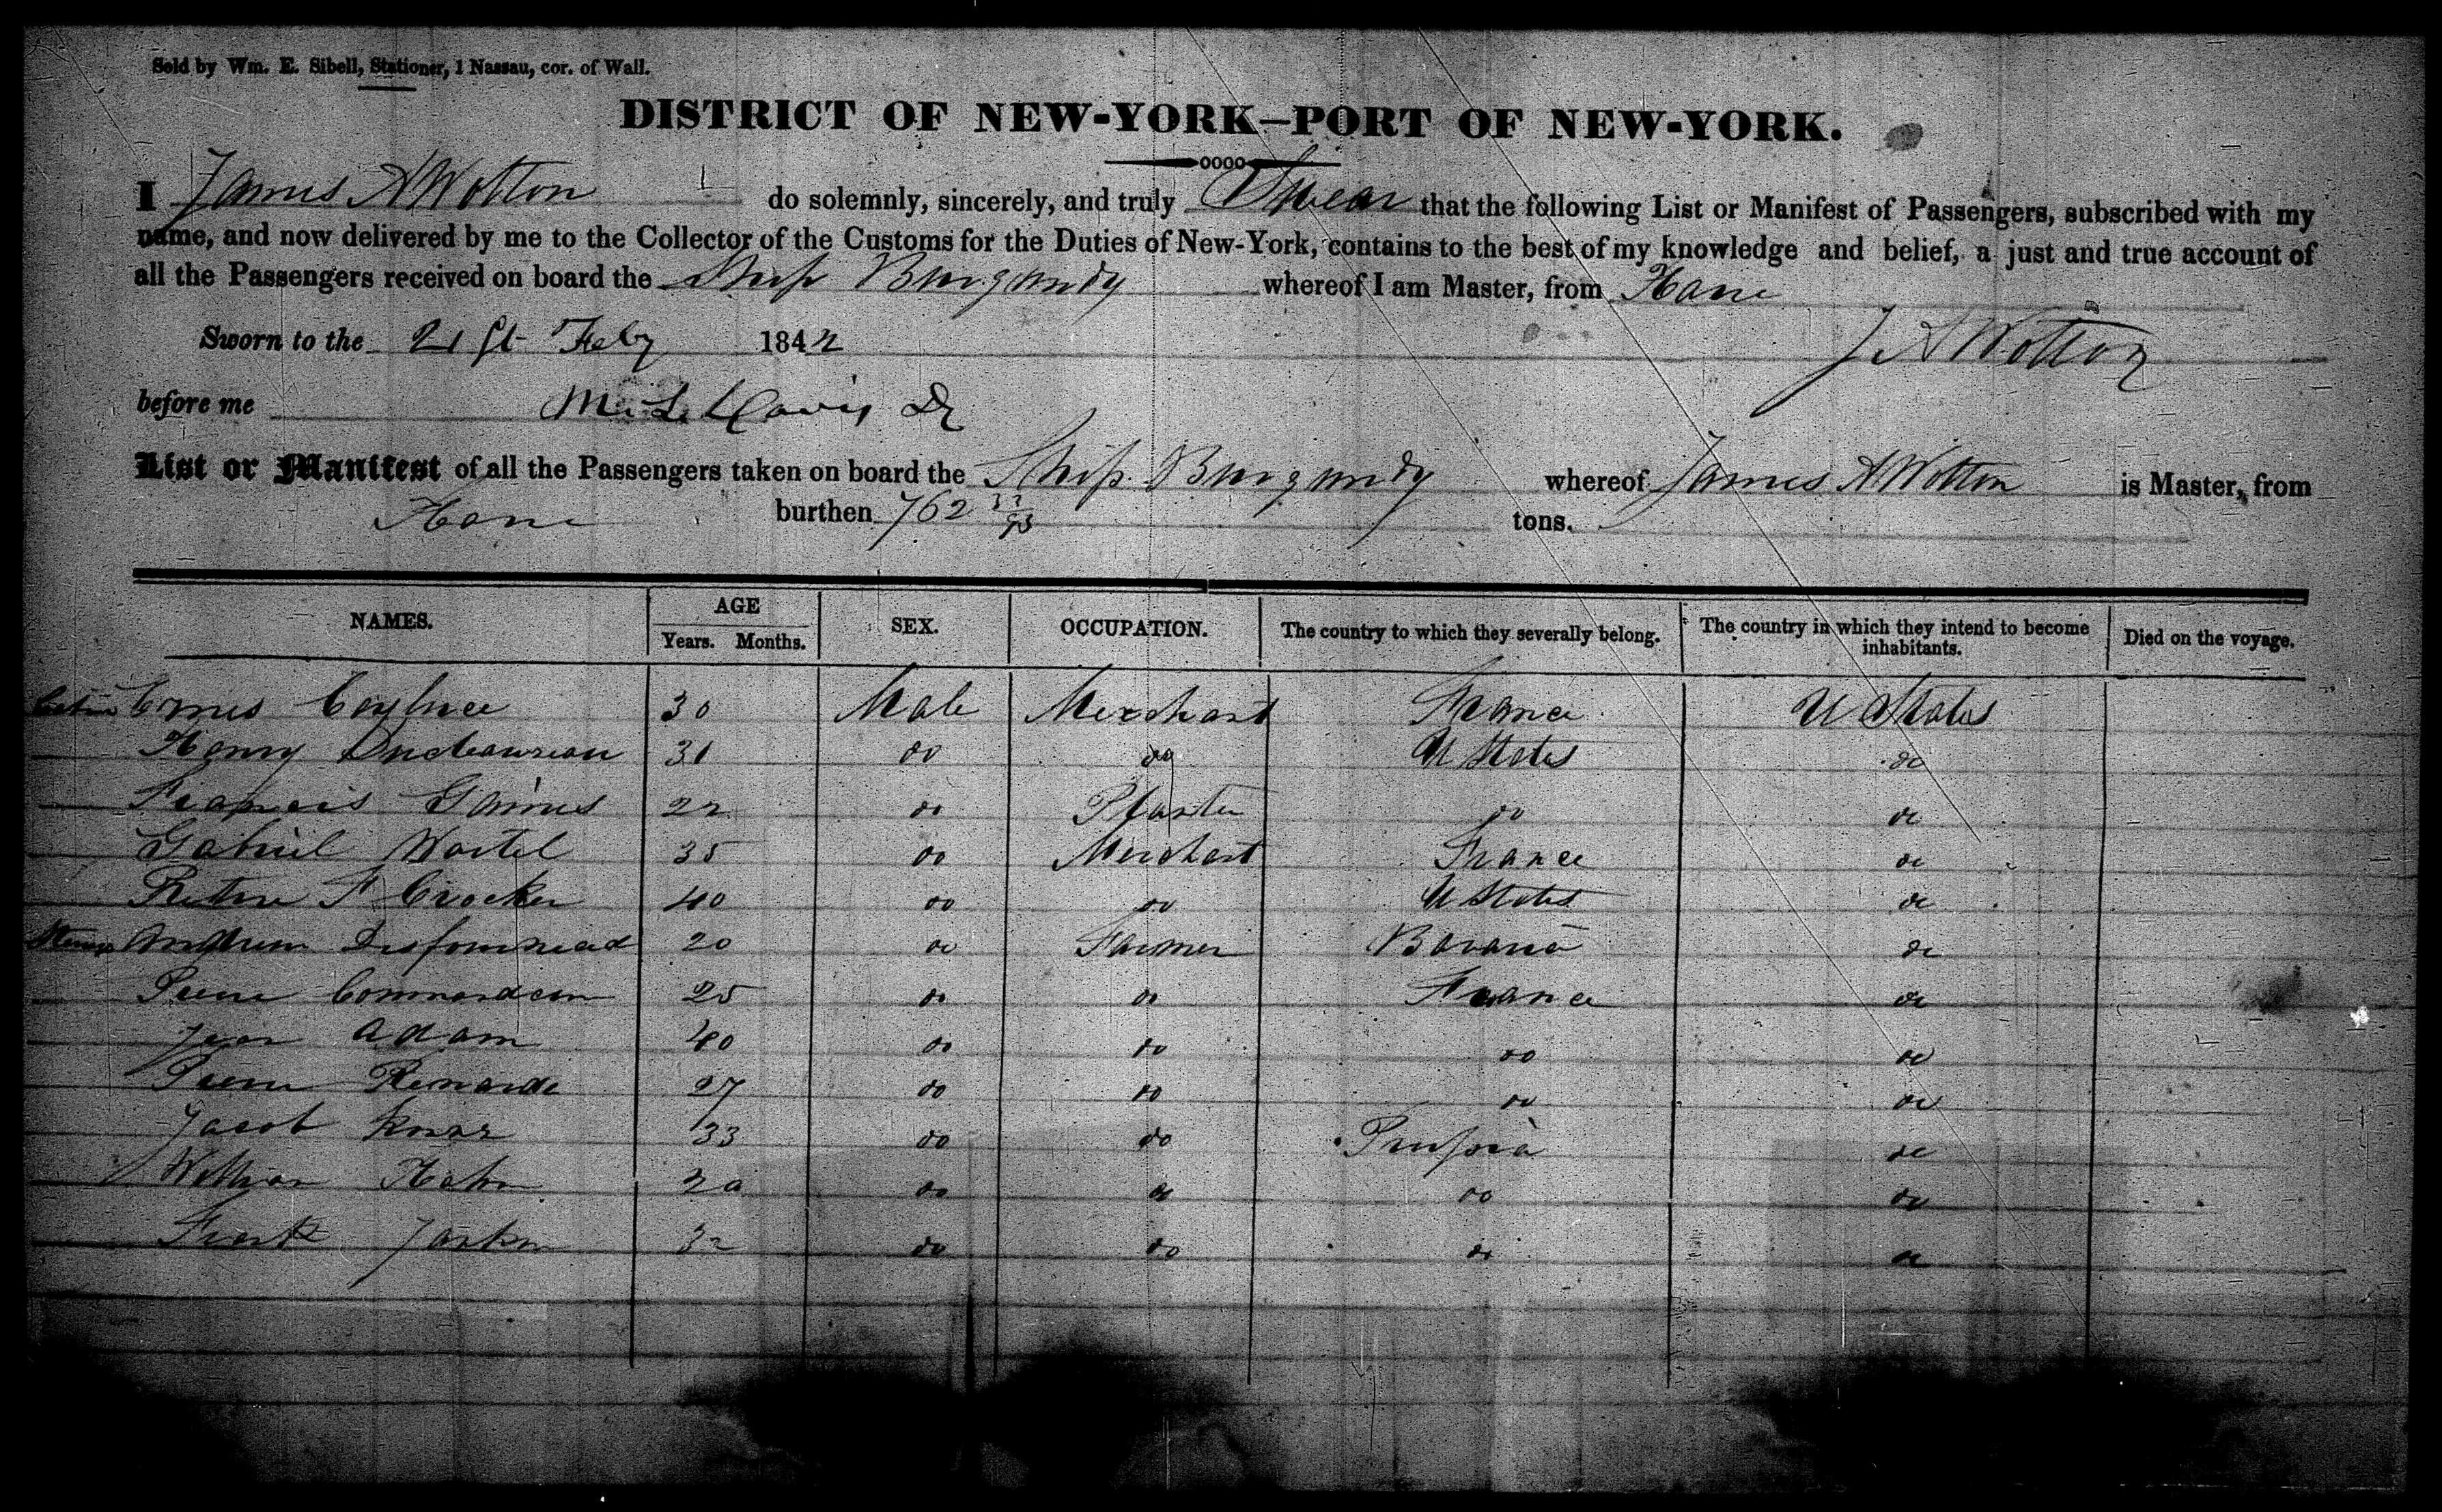 Sold by Wm. E. Sibell, Stationer, 1 Nassau, cor. of Wall.
DISTRICT OF NEW-YORK—PORT OF NEW-YORK.
I James A Wotton do solemnly, sincerely, and truly Swear that the following List or Manifest of Passengers, subscribed with my
name, and now delivered by me to the Collector of the Customs for the Duties of New-York, contains to the best of my knowledge and belief, a just and true account of
all the Passengers received on board the Ship Burgundy whereof I am Master, from Havre
Sworn to the 21st Feby 1842 J A Wotton
before me M. L. Davis
List or Manifest of all the Passengers taken on board the Ship Burgundy whereof James A Wotton is Master, from
Havre burthen 762 tons.
NAMES. AGE Years. Months. SEX. OCCUPATION. The country to which they severally belong. The country in which they intend to become inhabitants. Died on the voyage.
30 Male Merchant France U States
Henry 31 do do U States do
Francis Gaines 22 do Planter do do
Gabriel Wartel 35 do Merchant France do
F Crocker 40 do do U States do
20 do Farmer Bavaria do
Pierre 25 do do France do
Jean Adam 40 do do do do
Pierre 27 do do do do
Jacob 33 do do Prussia do
William Hahn 20 do do do do
32 do do do do